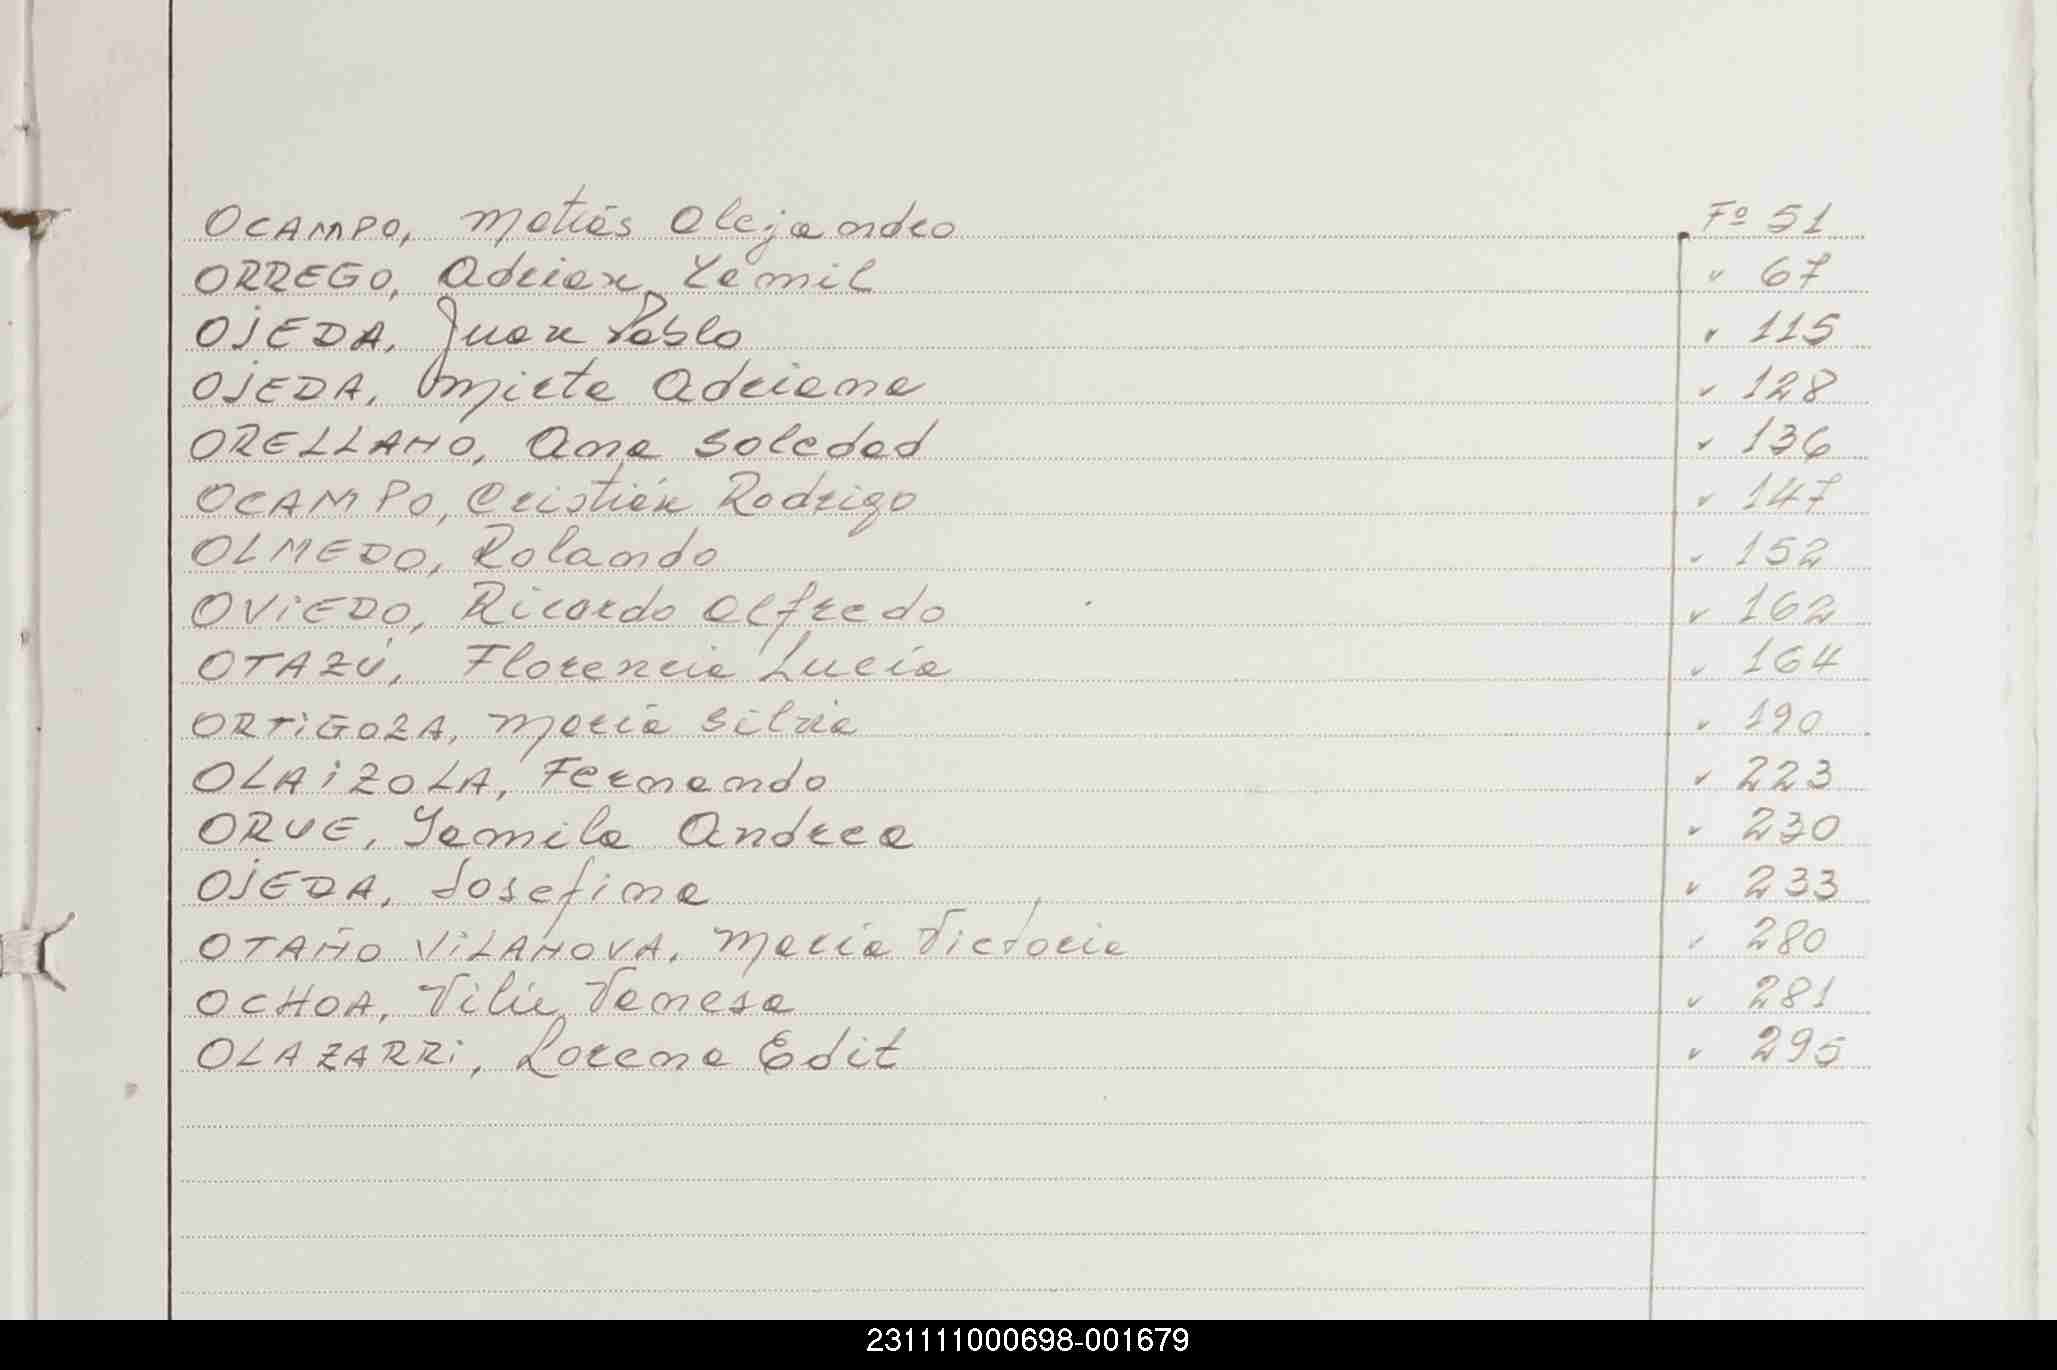 OCAMPO, Matías Alejandro Fº 51
ORREGO, Adrian Yamil " 67
OJEDA, Juan Pablo " 115
OJEDA, Mirta Adriana " 128
ORELLANO, Ana Soledad " 136
OCAMPO, Cristián Rodrigo " 147
OLMEDO, Rolando " 152
OVIEDO, Ricardo Alfredo " 162
OTAZÚ, Florencia Lucía " 164
ORTIGOZA, María Silvia " 190
OLAIZOLA, Fernando " 223
ORUE, Yamila Andrea " 230
OJEDA, Josefina " 233
OTAÑO VILANOVA, María Victoria " 280
OCHOA, Vanesa " 281
OLAZARRI, Lorena Edit " 295
231111000698-001679